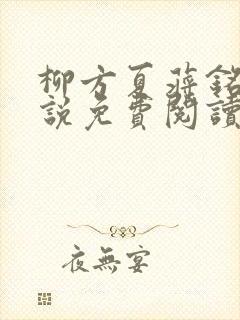 柳方夏蔣銘
說免費閱讀
夜無宴